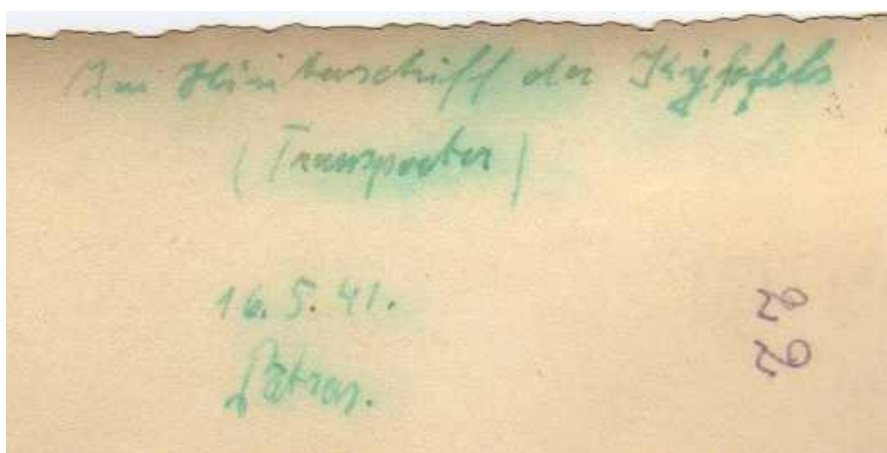 Im Hinterschiff der Kypfels
(Transporter)
16.5.41.
Patras.
22